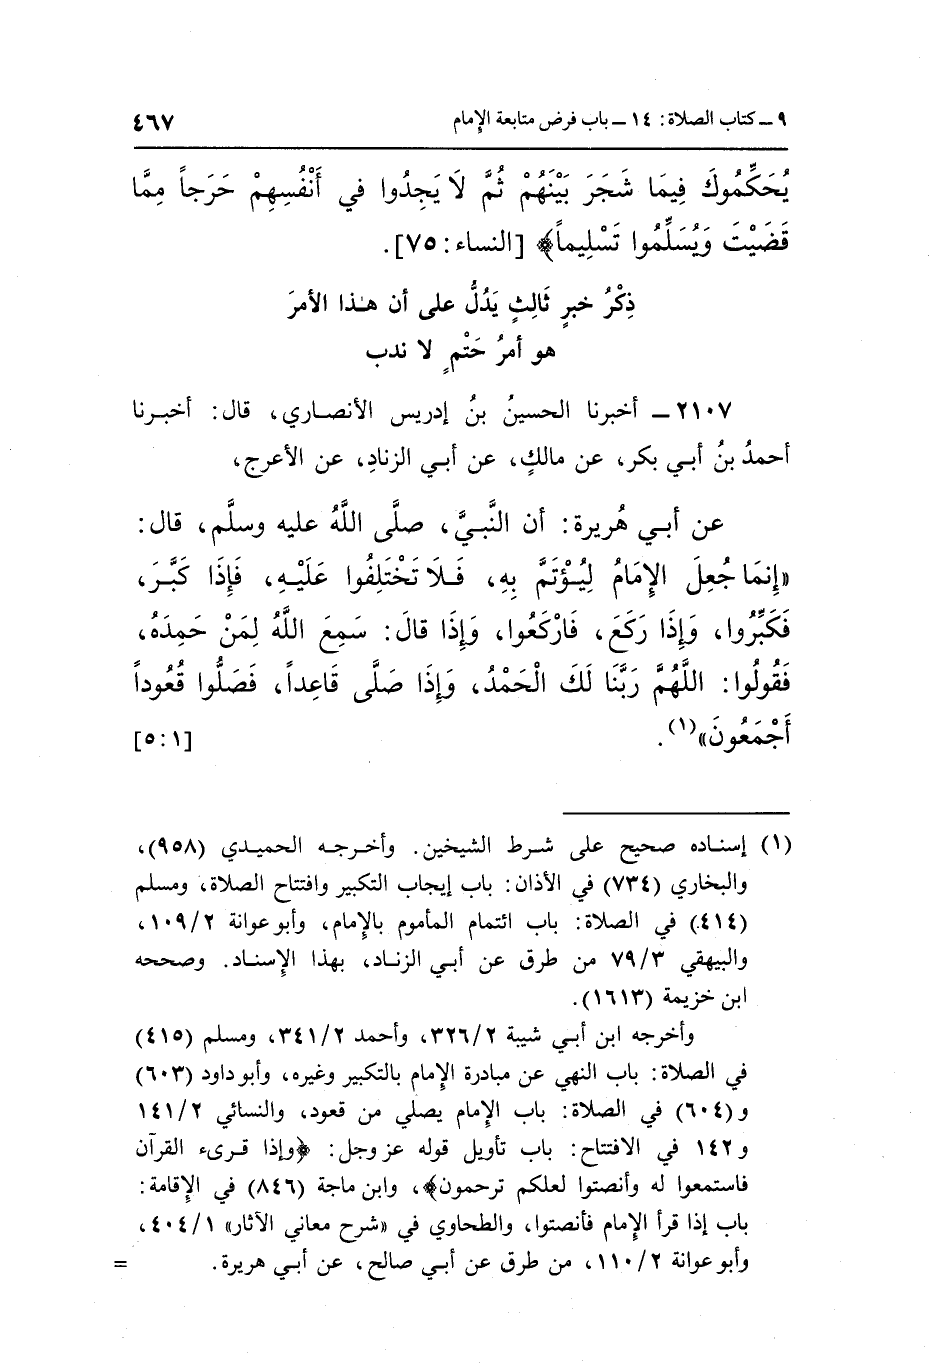 ٩ ــ كتاب الصلاة: ١٤ ــ باب فرض متابعة الإِمام ٤٦٧
يُحَكِّمُوكَ فِيمَا شَجَرَ بَيْنَهُمْ ثُمَّ لَا يَجِدُوا في أَنْفُسِهِمْ حَرَجاً مِمَّا
قَضَيْتَ وَيُسَلِّمُوا تَسْلِيماً﴾ [النساء: ٧٥].
ذِكْرُ خبرٍ ثَالِثٍ يَدُلُّ على أن هٰذا الأمرَ
هو أمرُ حَتْمٍ لا ندب
٢١٠٧ ــ أخبرنا الحسينُ بنُ إدريس الأنصاري، قال: أخبرنا
أحمدُ بنُ أبي بكر، عن مالكٍ، عن أبي الزنادِ، عن الأعرج،
عن أبي هُريرة: أن النَّبيَّ، صلَّى اللَّهُ عليه وسلَّم، قال:
«إِنمَا جُعِلَ الإِمَامُ لِيُؤْتَمَّ بِهِ، فَلَا تَخْتَلِفُوا عَلَيْهِ، فَإِذَا كَبَّرَ،
فَكَبِّرُوا، وَإِذَا رَكَعَ، فَارْكَعُوا، وَإِذَا قالَ: سَمِعَ اللَّهُ لِمَنْ حَمِدَهُ،
فَقُولُوا: اللَّهُمَّ رَبَّنَا لَكَ الْحَمْدُ، وَإِذَا صَلَّى قَاعِداً، فَصَلُّوا قُعُوداً
أَجْمَعُونَ»(١). [١: ٥]
(١) إسناده صحيح على شرط الشيخين. وأخرجه الحميدي (٩٥٨)،
والبخاري (٧٣٤) في الأذان: باب إيجاب التكبير وافتتاح الصلاة، ومسلم
(٤١٤) في الصلاة: باب ائتمام المأموم بالإِمام، وأبو عوانة ١٠٩/٢،
والبيهقي ٧٩/٣ من طرق عن أبي الزناد، بهذا الإِسناد. وصححه
ابن خزيمة (١٦١٣).
وأخرجه ابن أبي شيبة ٣٢٦/٢، وأحمد ٣٤١/٢، ومسلم (٤١٥)
في الصلاة: باب النهي عن مبادرة الإِمام بالتكبير وغيره، وأبو داود (٦٠٣)
و (٦٠٤) في الصلاة: باب الإِمام يصلي من قعود، والنسائي ١٤١/٢
و ١٤٢ في الافتتاح: باب تأويل قوله عز وجل: ﴿وإذا قرىء القرآن
فاستمعوا له وأنصتوا لعلكم ترحمون﴾، وابن ماجة (٨٤٦) في الإِقامة:
باب إذا قرأ الإِمام فأنصتوا، والطحاوي في «شرح معاني الآثار» ٤٠٤/١،
وأبو عوانة ١١٠/٢، من طرق عن أبي صالح، عن أبي هريرة. =